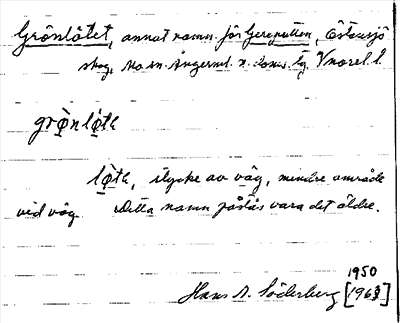 Grönlötet, annat namn för Gereputten, Östansjö
skog, Mo sn. Ångerml. n.
grònlǿtε
lǿtε, stycke av väg, mindre område
vid väg. Detta namn påstås vara det äldre.
1950
Hans A. Söderberg [1963]